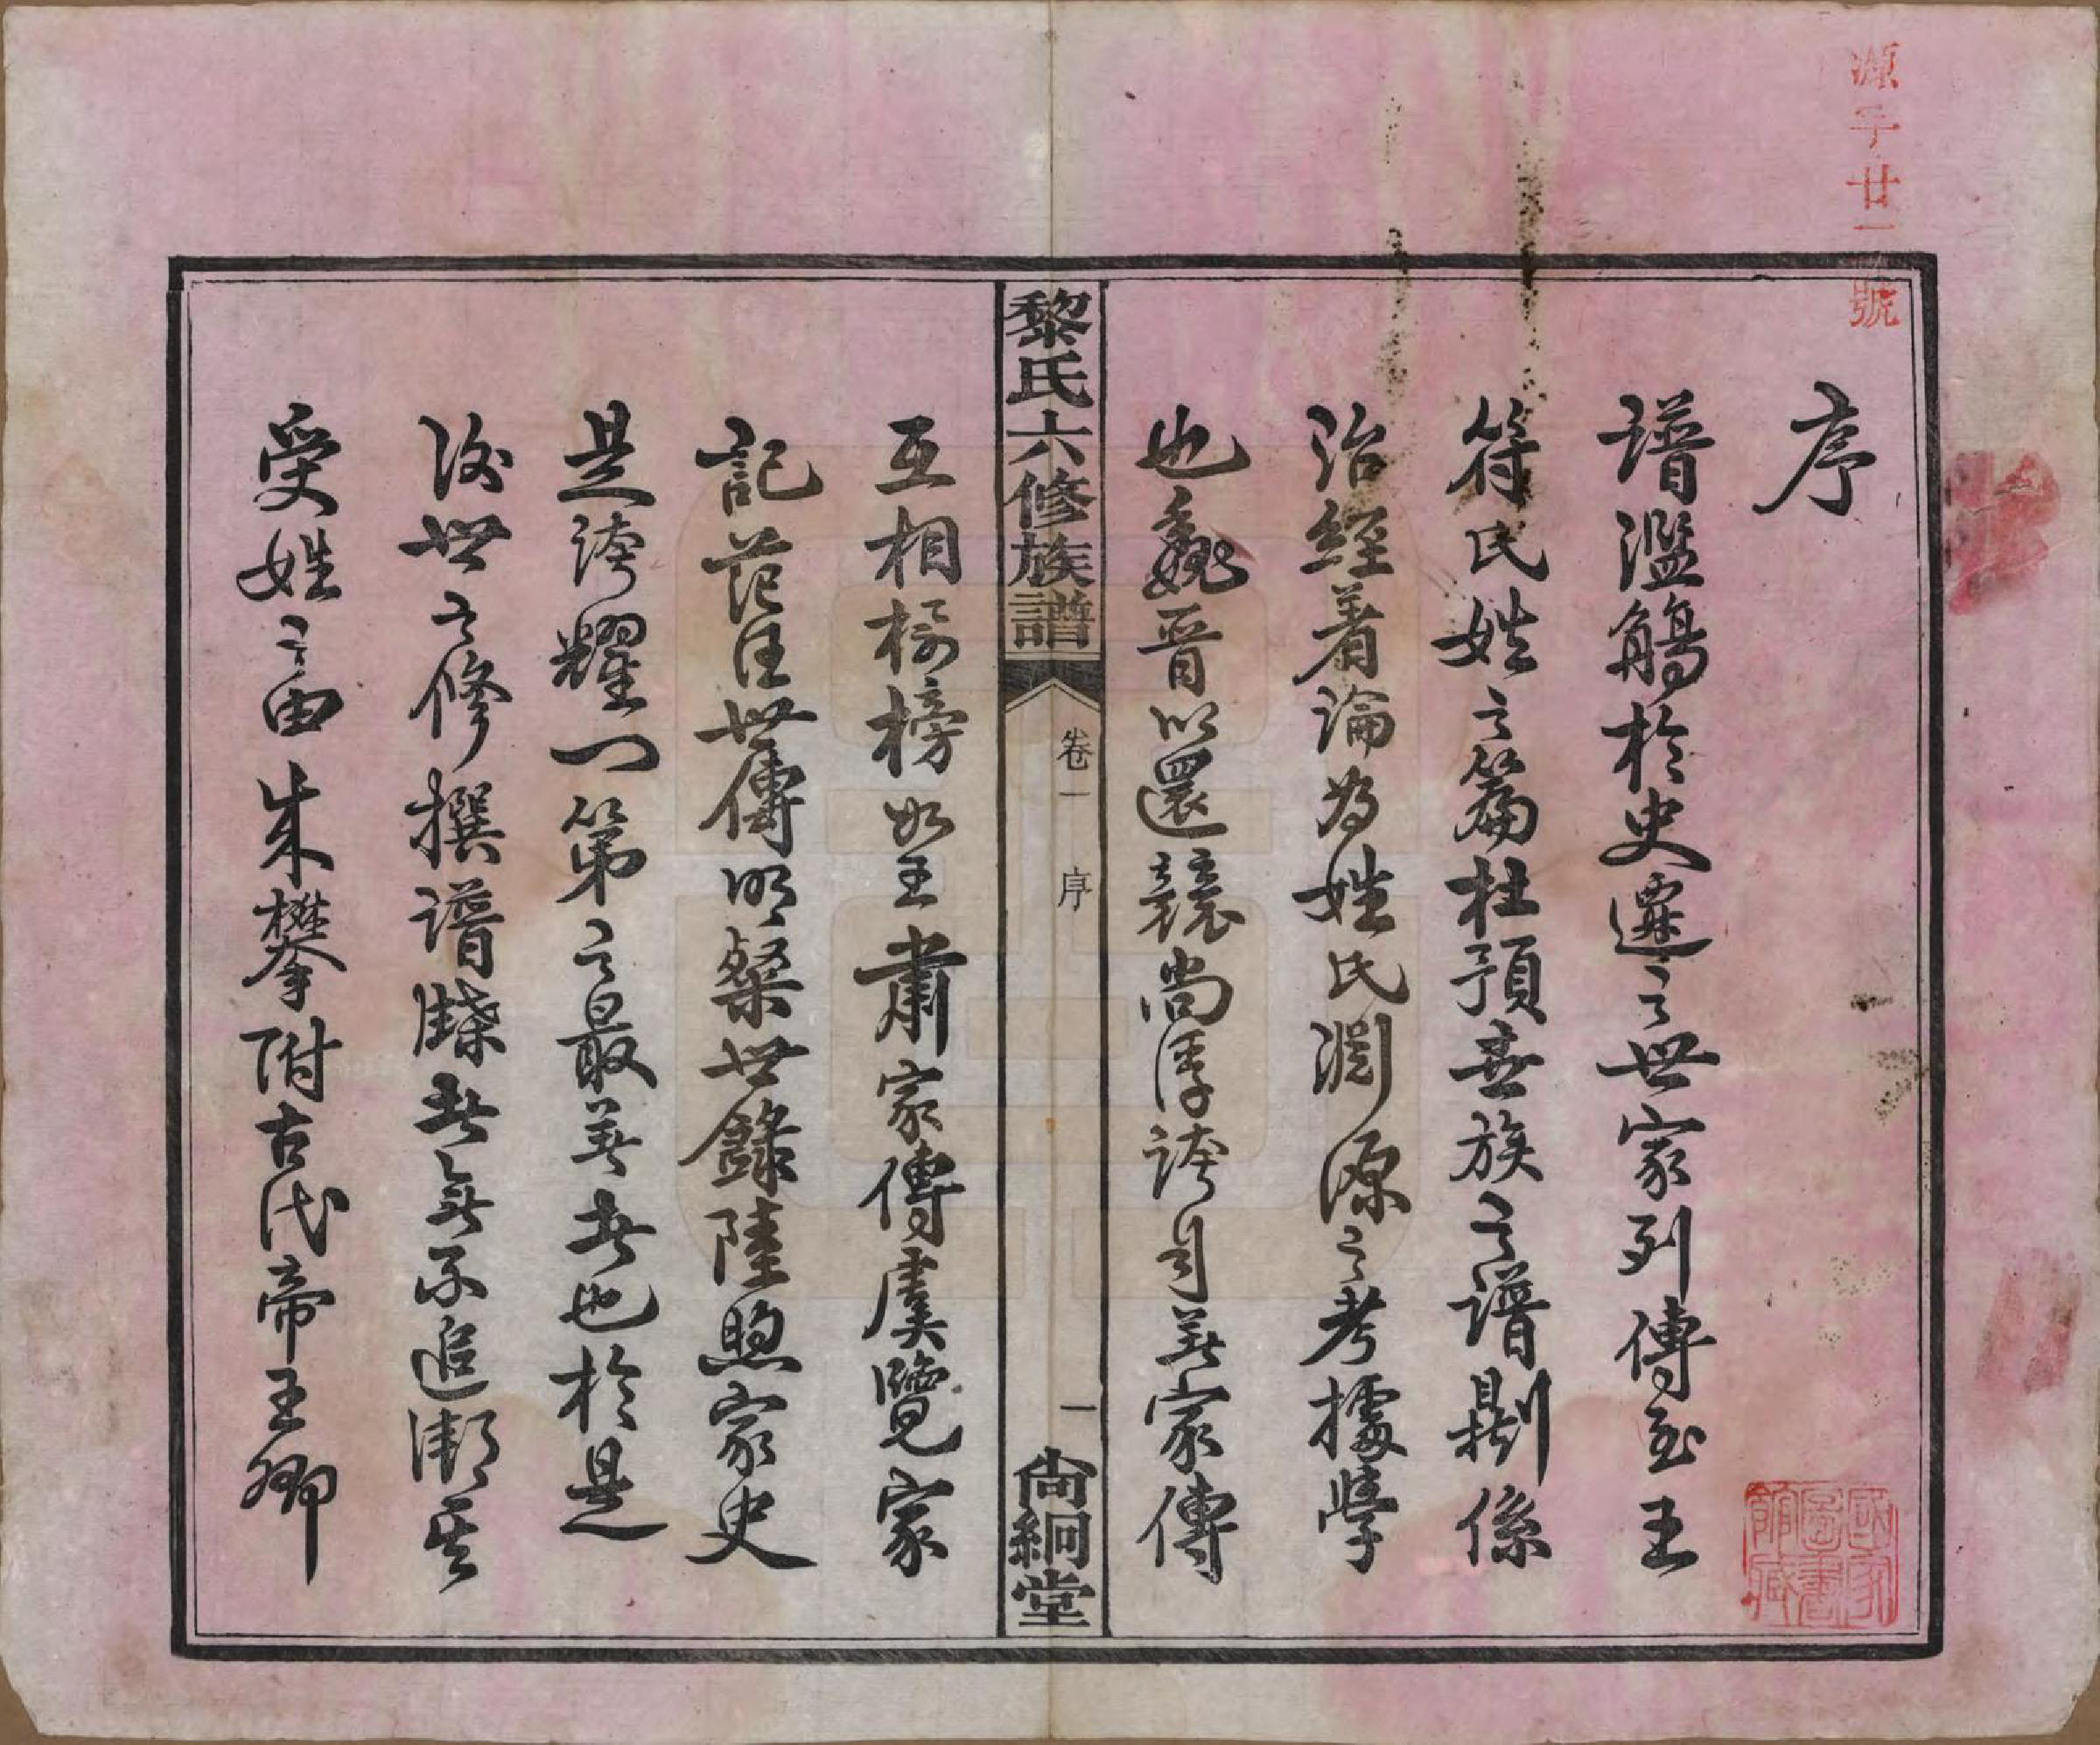 源字廿一號
序
譜濫觴於史遷之世家列傳至王
符氏姓之篇杜預世族之譜則係
治經著論為姓氏淵源之考據學
也魏晉以還競尚浮誇司道家傳
黎氏六修族譜
卷一 序
一
尚絅堂
互相標榜如王肅家傳虞覽家
記范汪世傳明粲世錄陸煦家史
是誇耀門第之最著者也於是
後世之修撰譜牒者無不追溯其
受姓之由來攀附古代帝王卿
國家圖書館藏